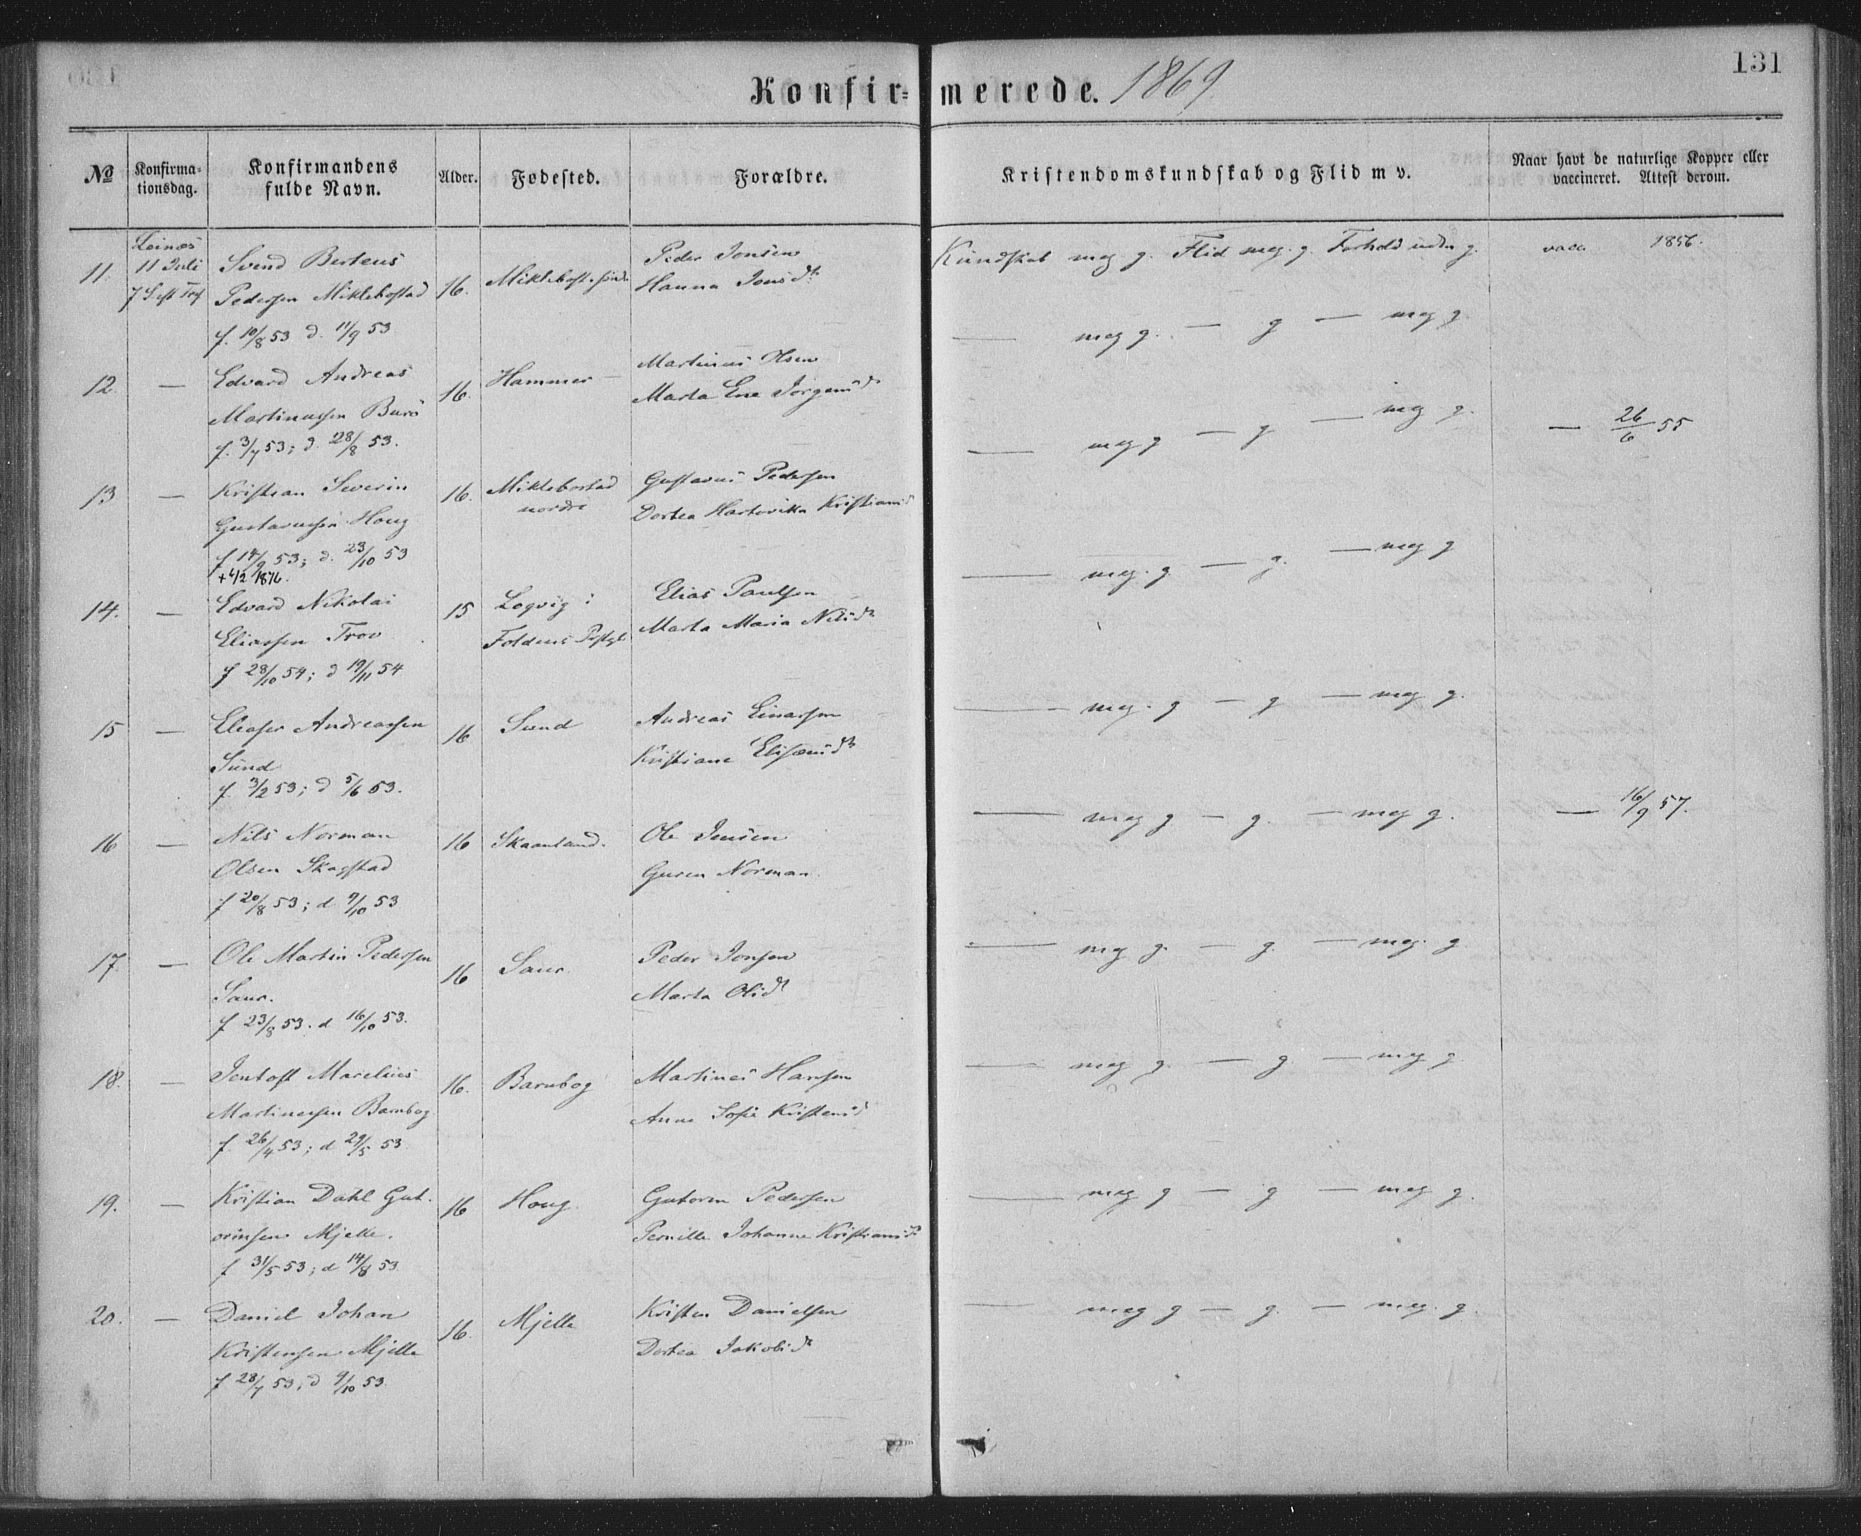 131
Konfirmerede. 1869
No Konfirma- Konfirmandens Alder. Fødested. Forældre. Kristendomskundskab og Flid m v. Naar havt de naturlige Kopper eller
tionsdag. fulde Navn. vaccineret. Attest derom.
Leines
11. 11 Juli Svend Berteus 16. Miklebost. søndr Peder Jonsen Kundskab meg g. Flid meg. g. Forhold udm g. vacc 1856.
7 S. eft Tref Pedersen Miklebostad Hanna Jonsdt
f. 10/8 53 d. 11/9 53
12. — Edvard Andreas 16. Hammer Martinus Olsen — meg g. — g — meg g.
Martinussen Burø Marta Ene Jørgensd
f. 3/7 53; d. 28/8 53.
13 — Kristian Severin 16. Miklebostad Gustavus Pedersen — meg g — g — meg g. — 26/6 55
Gustavussen Houg nordre Dortea Hartvikka Kristiansd
f 14/9 53; d. 23/10 53
+ 4/2 1876.
14. — Edvard Nikolai 15 Løgvig i Elias Paulsen — meg. g — g. — meg g
Eliassen Trov Foldens Prstgl Marta Maria Nilsdt
f 28/10 54; d 19/11 54
15 — Eleaser Andreassen 16 Sund Andreas Einarsen — meg. g — g — meg g.
Sund Kristiane Elisæusdt
f. 3/2 53; d 5/6 53.
16 — Nils Norman 16 Skaanland. Ole Jensen — meg g — g. — meg g. — 16/9 57.
Olsen Skagstad Guren Norman
f 20/8 53; d 9/10 53
17 — Ole Martin Pedersen 16 Saur. Peder Jonsen — meg g. — g. — meg. g
Saur. Marta Olsdt
f 23/8 53. d 16/10 53.
18. — Jentoft Marelius 16. Barnbog Martines Hansen — meg g. — g. — meg g.
Martinessen Barnbog Anne Sofie Kristensd
f. 26/4 53; d 29/5 53
19. — Kristian Dahl Gut- 16 Houg Gutorm Pedersen — meg g — g — meg g.
ormsen Mjelle. Pernille Johanne Kristiansdt
f 31/5 53; d 14/8 53
20. — Daniel Johan 16. Mjelle Kristen Danielsen — meg g — g. — meg. g.
Kristensen Mjelle Dortea Jakobsdt
f 28/7 53; d 9/10 53.